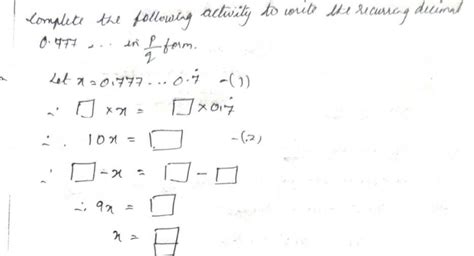 Complete the following activity to write the recurring decimal
0.777 ... in p/q form.
Let x = 0.777... 0.7̇ -(1)
∴ □ × x = □ × 0.7̇
∴ 10x = □ -(2)
∴ □ - x = □ - □
∴ 9x = □
x = □/□